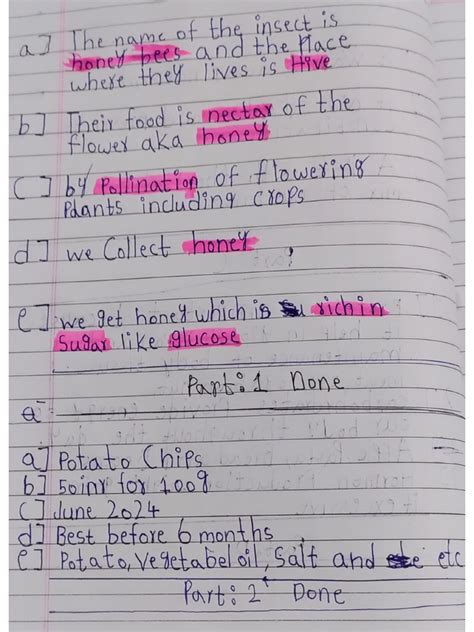 a] The name of the insect is
honey bees and the Place
where they lives is Hive
b] Their food is nectar of the
flower aka honey
C] by Pollination of flowering
Plants including crops
d] we Collect honey
e] we get honey which is rich in
Sugar like glucose
Part: 1 Done
a
a] Potato Chips
b] 50inr for 100g
C] June 2024
d] Best before 6 months
e] Potato, Vegetabel oil, Salt and etc
Part: 2 Done